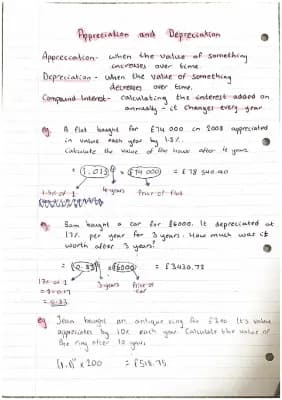 Appreciation and Depreciation
Appreciation - when the value of something
increases over time.
Depreciation - when the value of something
decreases over time.
Compound Interest - calculating the interest added on
annually - it changes every year
eg. A flat bought for £74 000 in 2008 appreciated
in value each year by 1.5%.
Calculate the value of the house after 4 years
= (1.015)⁴ × (74 000) = £78 540.40
4 years Price of flat
eg. Sam bought a car for £6000. It depreciated at
17% per year for 3 years. How much was it
worth after 3 years?
= (0.83)³ × (6000) = £3430.72
17% of 1 3 years Price of
car
= 0.83
eg Jean bought an antique ring for £200. It's value
appreciates by 10% each year. Calculate the value of
the ring after 10 years
(1.1)¹⁰ × 200 = £518.75